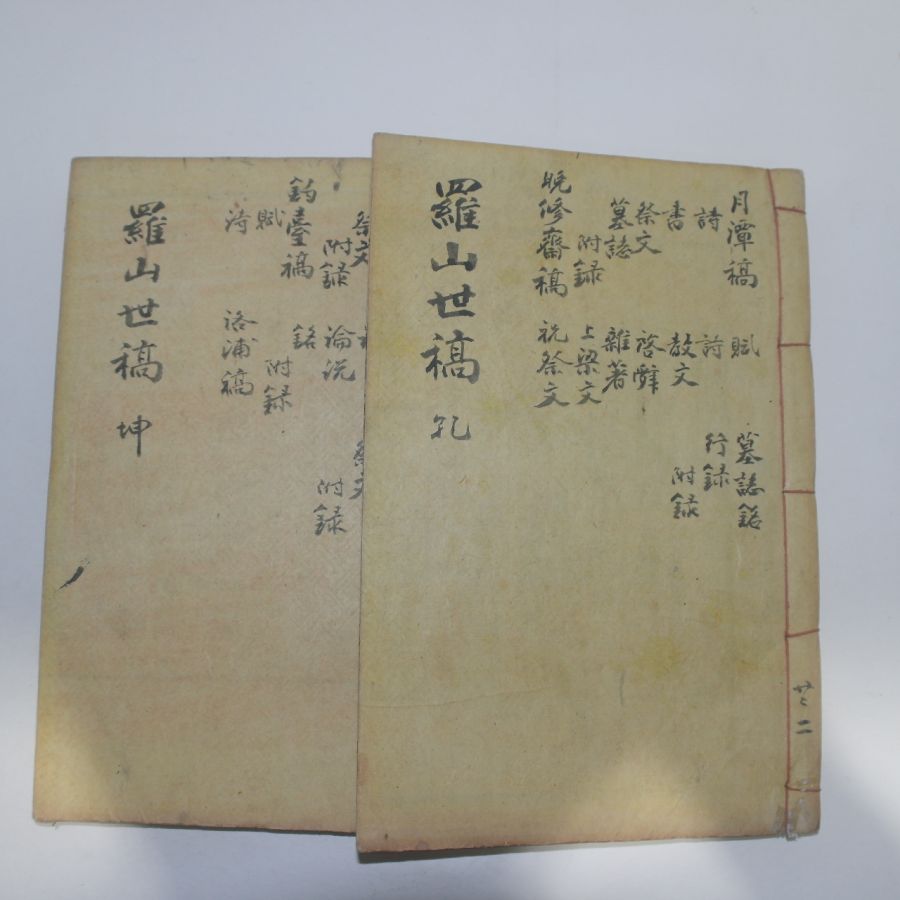 月潭稿 賦 墓誌銘
詩 詩 行録
書 教文 附録
祭文 啓辭
墓誌 雜著
附録 上梁文
晩修齋稿 祝祭文
羅山世稿 乾
共二
祭文 祭文
附録 論說 附録
釣臺稿 銘
賦 附録
詩 洛浦稿
羅山世稿 坤